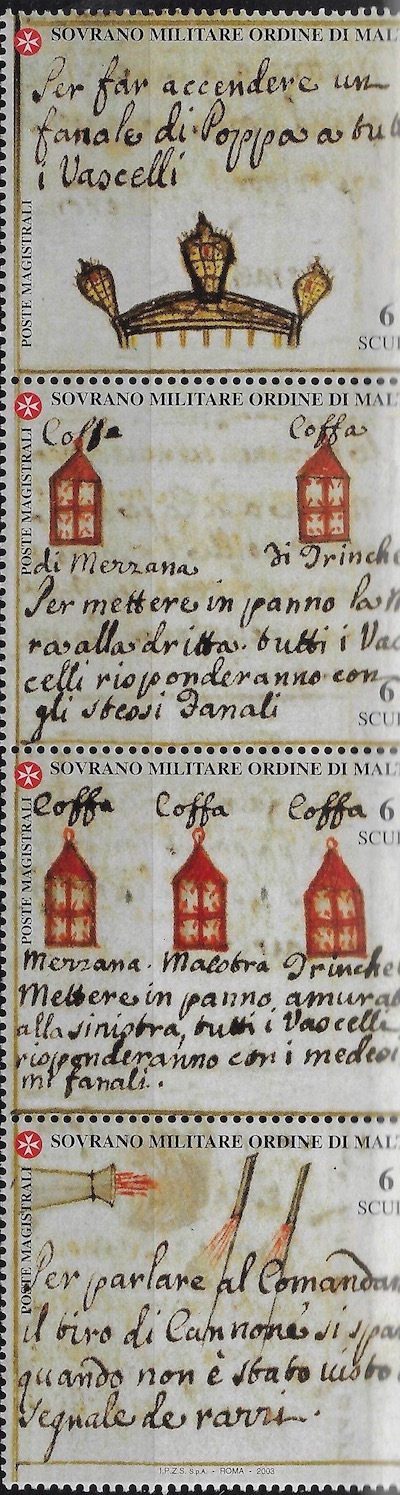 SOVRANO MILITARE ORDINE DI MAL
POSTE MAGISTRALI
Per far accendere un
fanale di Poppa a tut
i Vascelli
6
SCU
SOVRANO MILITARE ORDINE DI MAL
POSTE MAGISTRALI
Coffa Coffa
di Mezzana di Trinche
Per mettere in panno la M
ra alla dritta tutti i Vas
celli risponderanno con
gli stessi Fanali
6
SCU
SOVRANO MILITARE ORDINE DI MAL
POSTE MAGISTRALI
Coffa Coffa Coffa
6
SCU
Mezzana. Maestra Trinche
Mettere in panno amurat
alla sinistra, tutti i Vascelli
risponderanno con i medesi
mi fanali.
SOVRANO MILITARE ORDINE DI MAL
POSTE MAGISTRALI
6
SCU
Per parlare al Comandan
il tiro di Cannone si spa
quando non è stato visto
segnale de razzi.
I.P.Z.S. S.p.A. - ROMA - 2003